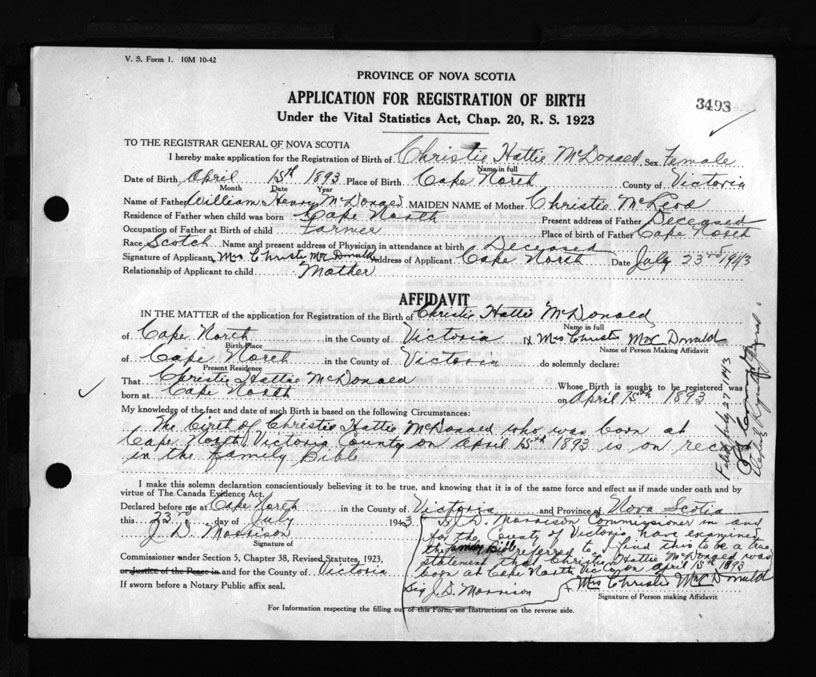 V. S. Form 1. 10M 10-42
PROVINCE OF NOVA SCOTIA
APPLICATION FOR REGISTRATION OF BIRTH
3493
Under the Vital Statistics Act, Chap. 20, R. S. 1923
TO THE REGISTRAR GENERAL OF NOVA SCOTIA
I hereby make application for the Registration of Birth of Christie Hattie McDonald Sex Female
Name in full
Date of Birth April 15th 1893 Place of Birth Cape North County of Victoria
Month Date Year
Name of Father William Henry McDonald MAIDEN NAME of Mother Christie McLeod
Residence of Father when child was born Cape North Present address of Father Deceased
Occupation of Father at Birth of child Farmer Place of birth of Father Cape North
Race Scotch Name and present address of Physician in attendance at birth Deceased
Signature of Applicant Mrs Christie Address of Applicant Cape North Date July 23rd 1943
Relationship of Applicant to child Mother
AFFIDAVIT
IN THE MATTER of the application for Registration of the Birth of Christie Hattie McDonald
Name in full
of Cape North in the County of Victoria Mrs Christie MacDonald
Birth Place Name of Person Making Affidavit
of Cape North in the County of Victoria do solemnly declare:
Present Residence
That Christie Hattie McDonald Whose Birth is sought to be registered was
born at Cape North on April 15th 1893
My knowledge of the fact and date of such Birth is based on the following Circumstances:
The birth of Christie Hattie McDonald who was born at
Cape North Victoria County on April 15th 1893 is on record
in the family Bible
I make this solemn declaration conscientiously believing it to be true, and knowing that it is of the same force and effect as if made under oath and by
virtue of The Canada Evidence Act.
Declared before me at Cape North in the County of Victoria and Province of Nova Scotia
this 23rd day of July 1943
J. D. Morrison
Signature of
Commissioner under Section 5, Chapter 38, Revised Statutes, 1923,
or Justice of the Peace in and for the County of Victoria
If sworn before a Notary Public affix seal.
I J. D. Morrison Commissioner in and
for the County of Victoria, have examined
the family Bible referred to. I find this to be a true
statement that Christie Hattie McDonald was
born at Cape North Victoria on April 15th 1893
Sig J. D. Morrison
Mrs Christie MacDonald
Signature of Person making Affidavit
For Information respecting the filling out of this Form, see Instructions on the reverse side.
Filed July 27 1943